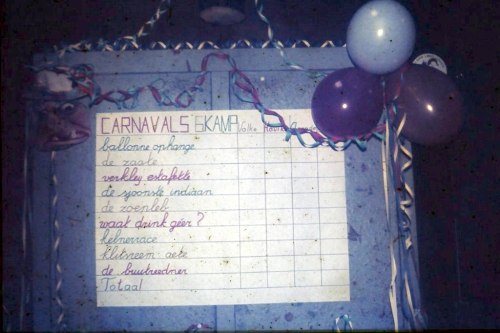 CARNAVALS SKAMP
ballonne ophange
de zaate
verkley estafette
de sjoonste indiaan
de zoepleb
waat drink geer?
kebnerrace
klitsreem aete
de buutreedner
Totaal